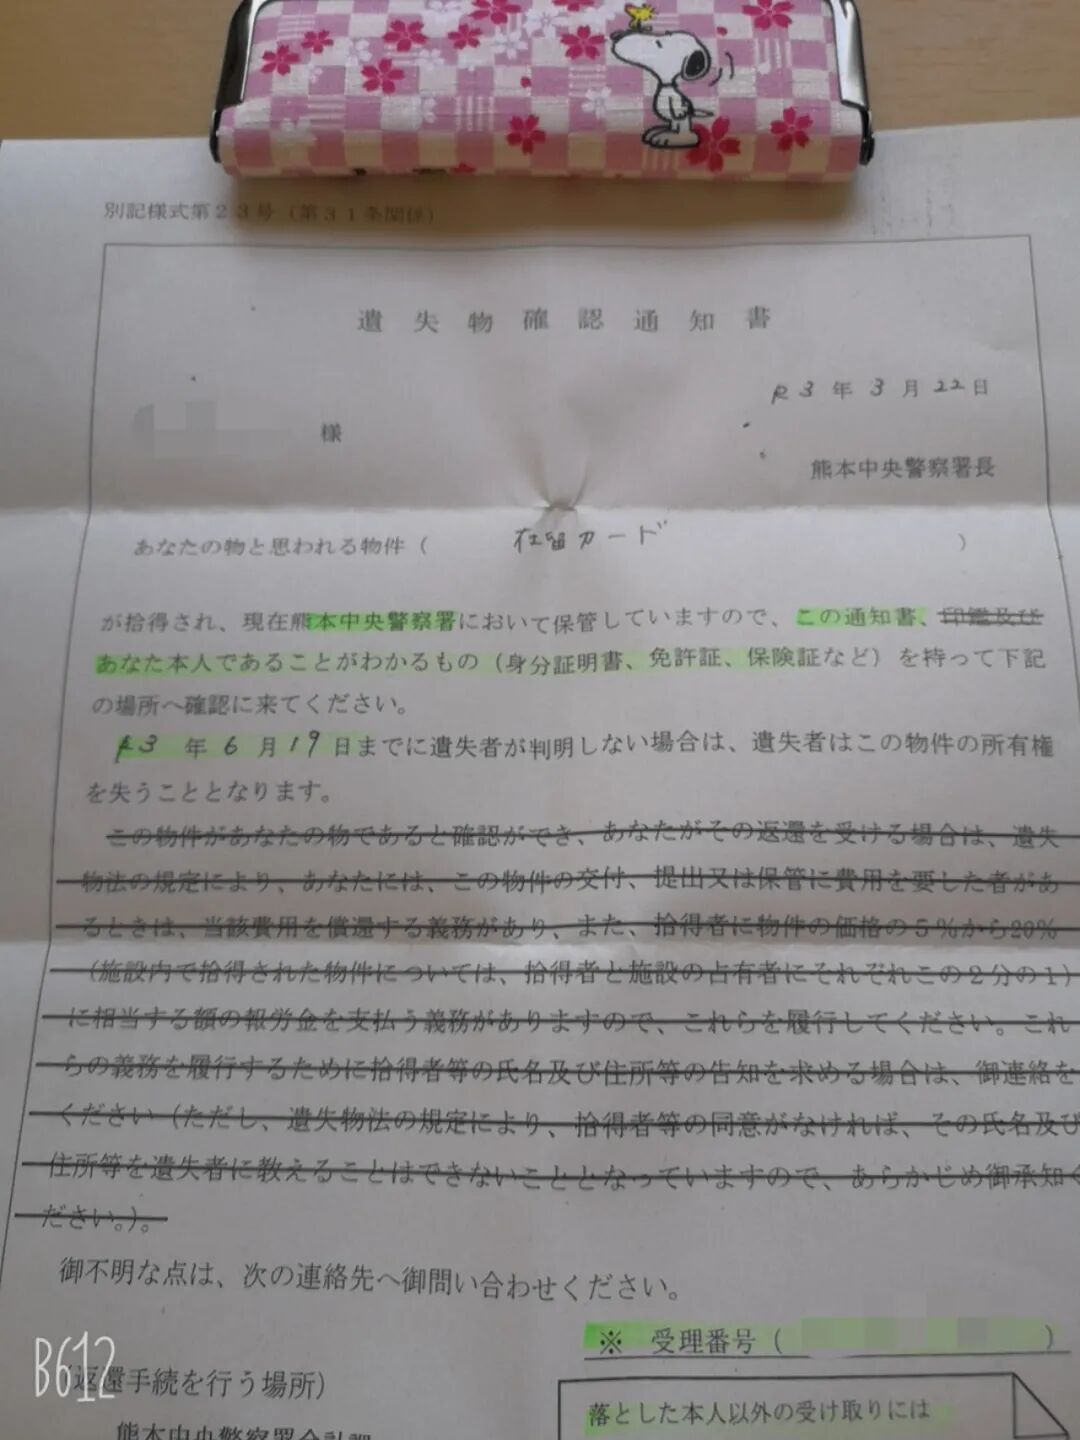 別記様式第23号（第31条関係）
遺失物確認通知書
R3年3月22日
様
熊本中央警察署長
あなたの物と思われる物件（ 在留カード ）
が拾得され、現在熊本中央警察署において保管していますので、この通知書、印鑑及び
あなた本人であることがわかるもの（身分証明書、免許証、保険証など）を持って下記
の場所へ確認に来てください。
R3年6月19日までに遺失者が判明しない場合は、遺失者はこの物件の所有権
を失うこととなります。
この物件があなたの物であると確認ができ、あなたがその返還を受ける場合は、遺失
物法の規定により、あなたには、この物件の交付、提出又は保管に費用を要した者があ
るときは、当該費用を償還する義務があり、また、拾得者に物件の価格の5％から20％
（施設内で拾得された物件については、拾得者と施設の占有者にそれぞれこの2分の1）
に相当する額の報労金を支払う義務がありますので、これらを履行してください。これ
らの義務を履行するために拾得者等の氏名及び住所等の告知を求める場合は、御連絡を
ください（ただし、遺失物法の規定により、拾得者等の同意がなければ、その氏名及び
住所等を遺失者に教えることはできないこととなっていますので、あらかじめ御承知く
ださい。）。
御不明な点は、次の連絡先へ御問い合わせください。
※ 受理番号（ ）
B612
（返還手続を行う場所）
落とした本人以外の受け取りには
熊本中央警察署会計課